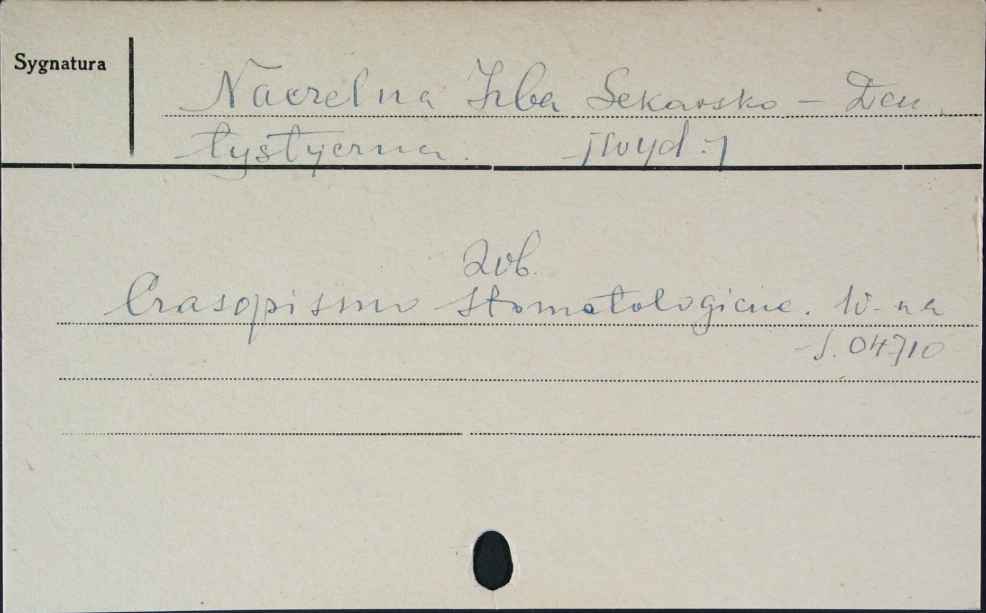 Sygnatura
Naczelna Izba Lekarsko - Den
tystyczna. [wyd.]
Zob.
Czasopismo Stomatologiczne. W-wa
J. 04710